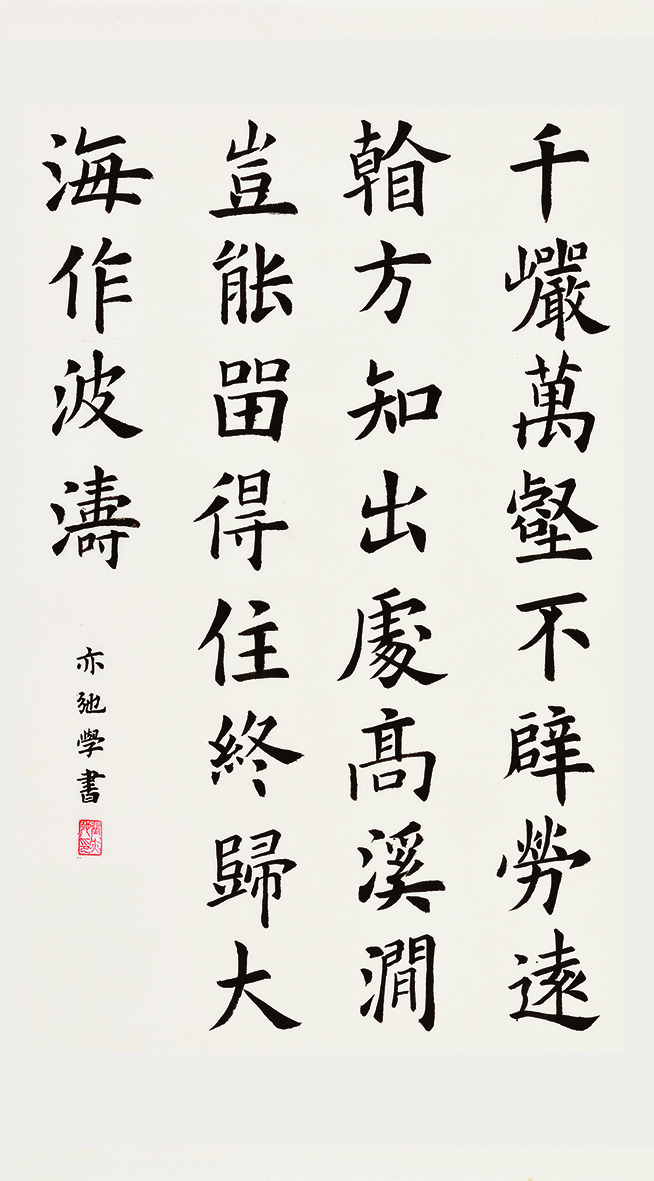 千巗萬壑不辟勞逺
看方知出處髙溪澗
豈能㽞得住終歸大
海作波濤
亦弛學書